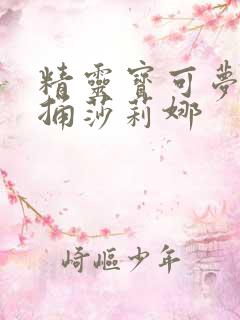 精靈寶可夢
捕莎莉娜
崎嶇少年